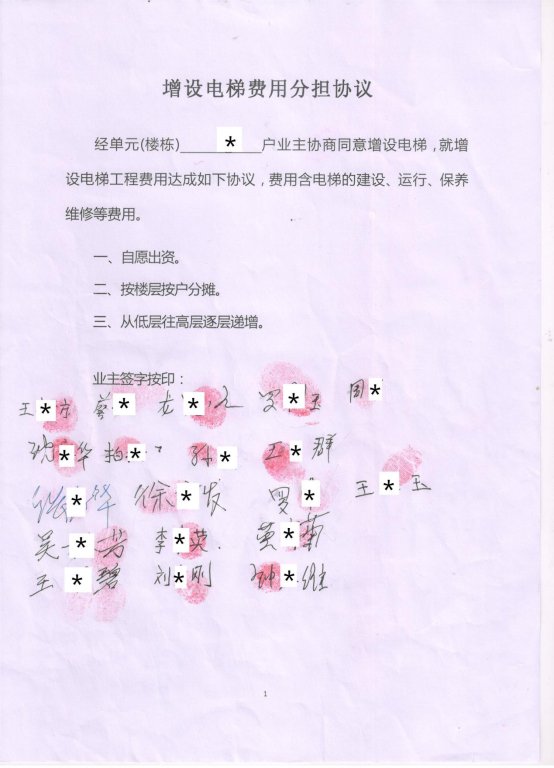 增设电梯费用分担协议
经单元(楼栋)________*____户业主协商同意增设电梯,就增
设电梯工程费用达成如下协议,费用含电梯的建设、运行、保养
维修等费用。
一、自愿出资。
二、按楼层按户分摊。
三、从低层往高层逐层递增。
业主签字按印:
王*方 * 龙* 罗*玉 周*
*华 * 孙* 王*群
*华 徐*发 罗* 王*玉
吴*芳 李*英 黄*
王*碧 刘*刚 钟*维
1